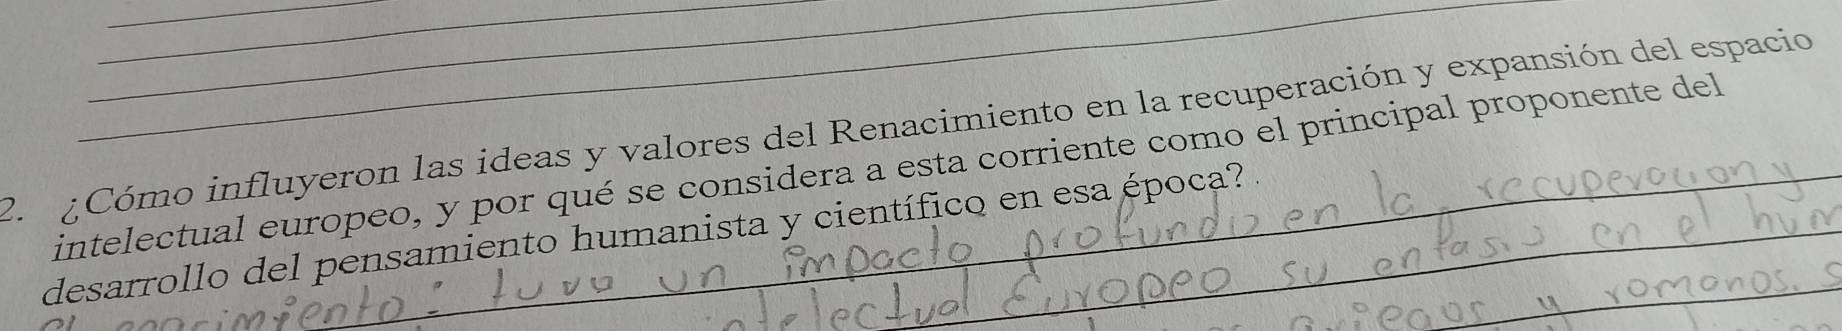 2. ¿Cómo influyeron las ideas y valores del Renacimiento en la recuperación y expansión del espacio
intelectual europeo, y por qué se considera a esta corriente como el principal proponente del
desarrollo del pensamiento humanista y científico en esa época?
tuvo un impacto profundo en la recuperacion y
intelectual Europeo su enfasis en el hum
griegos y romanos. S